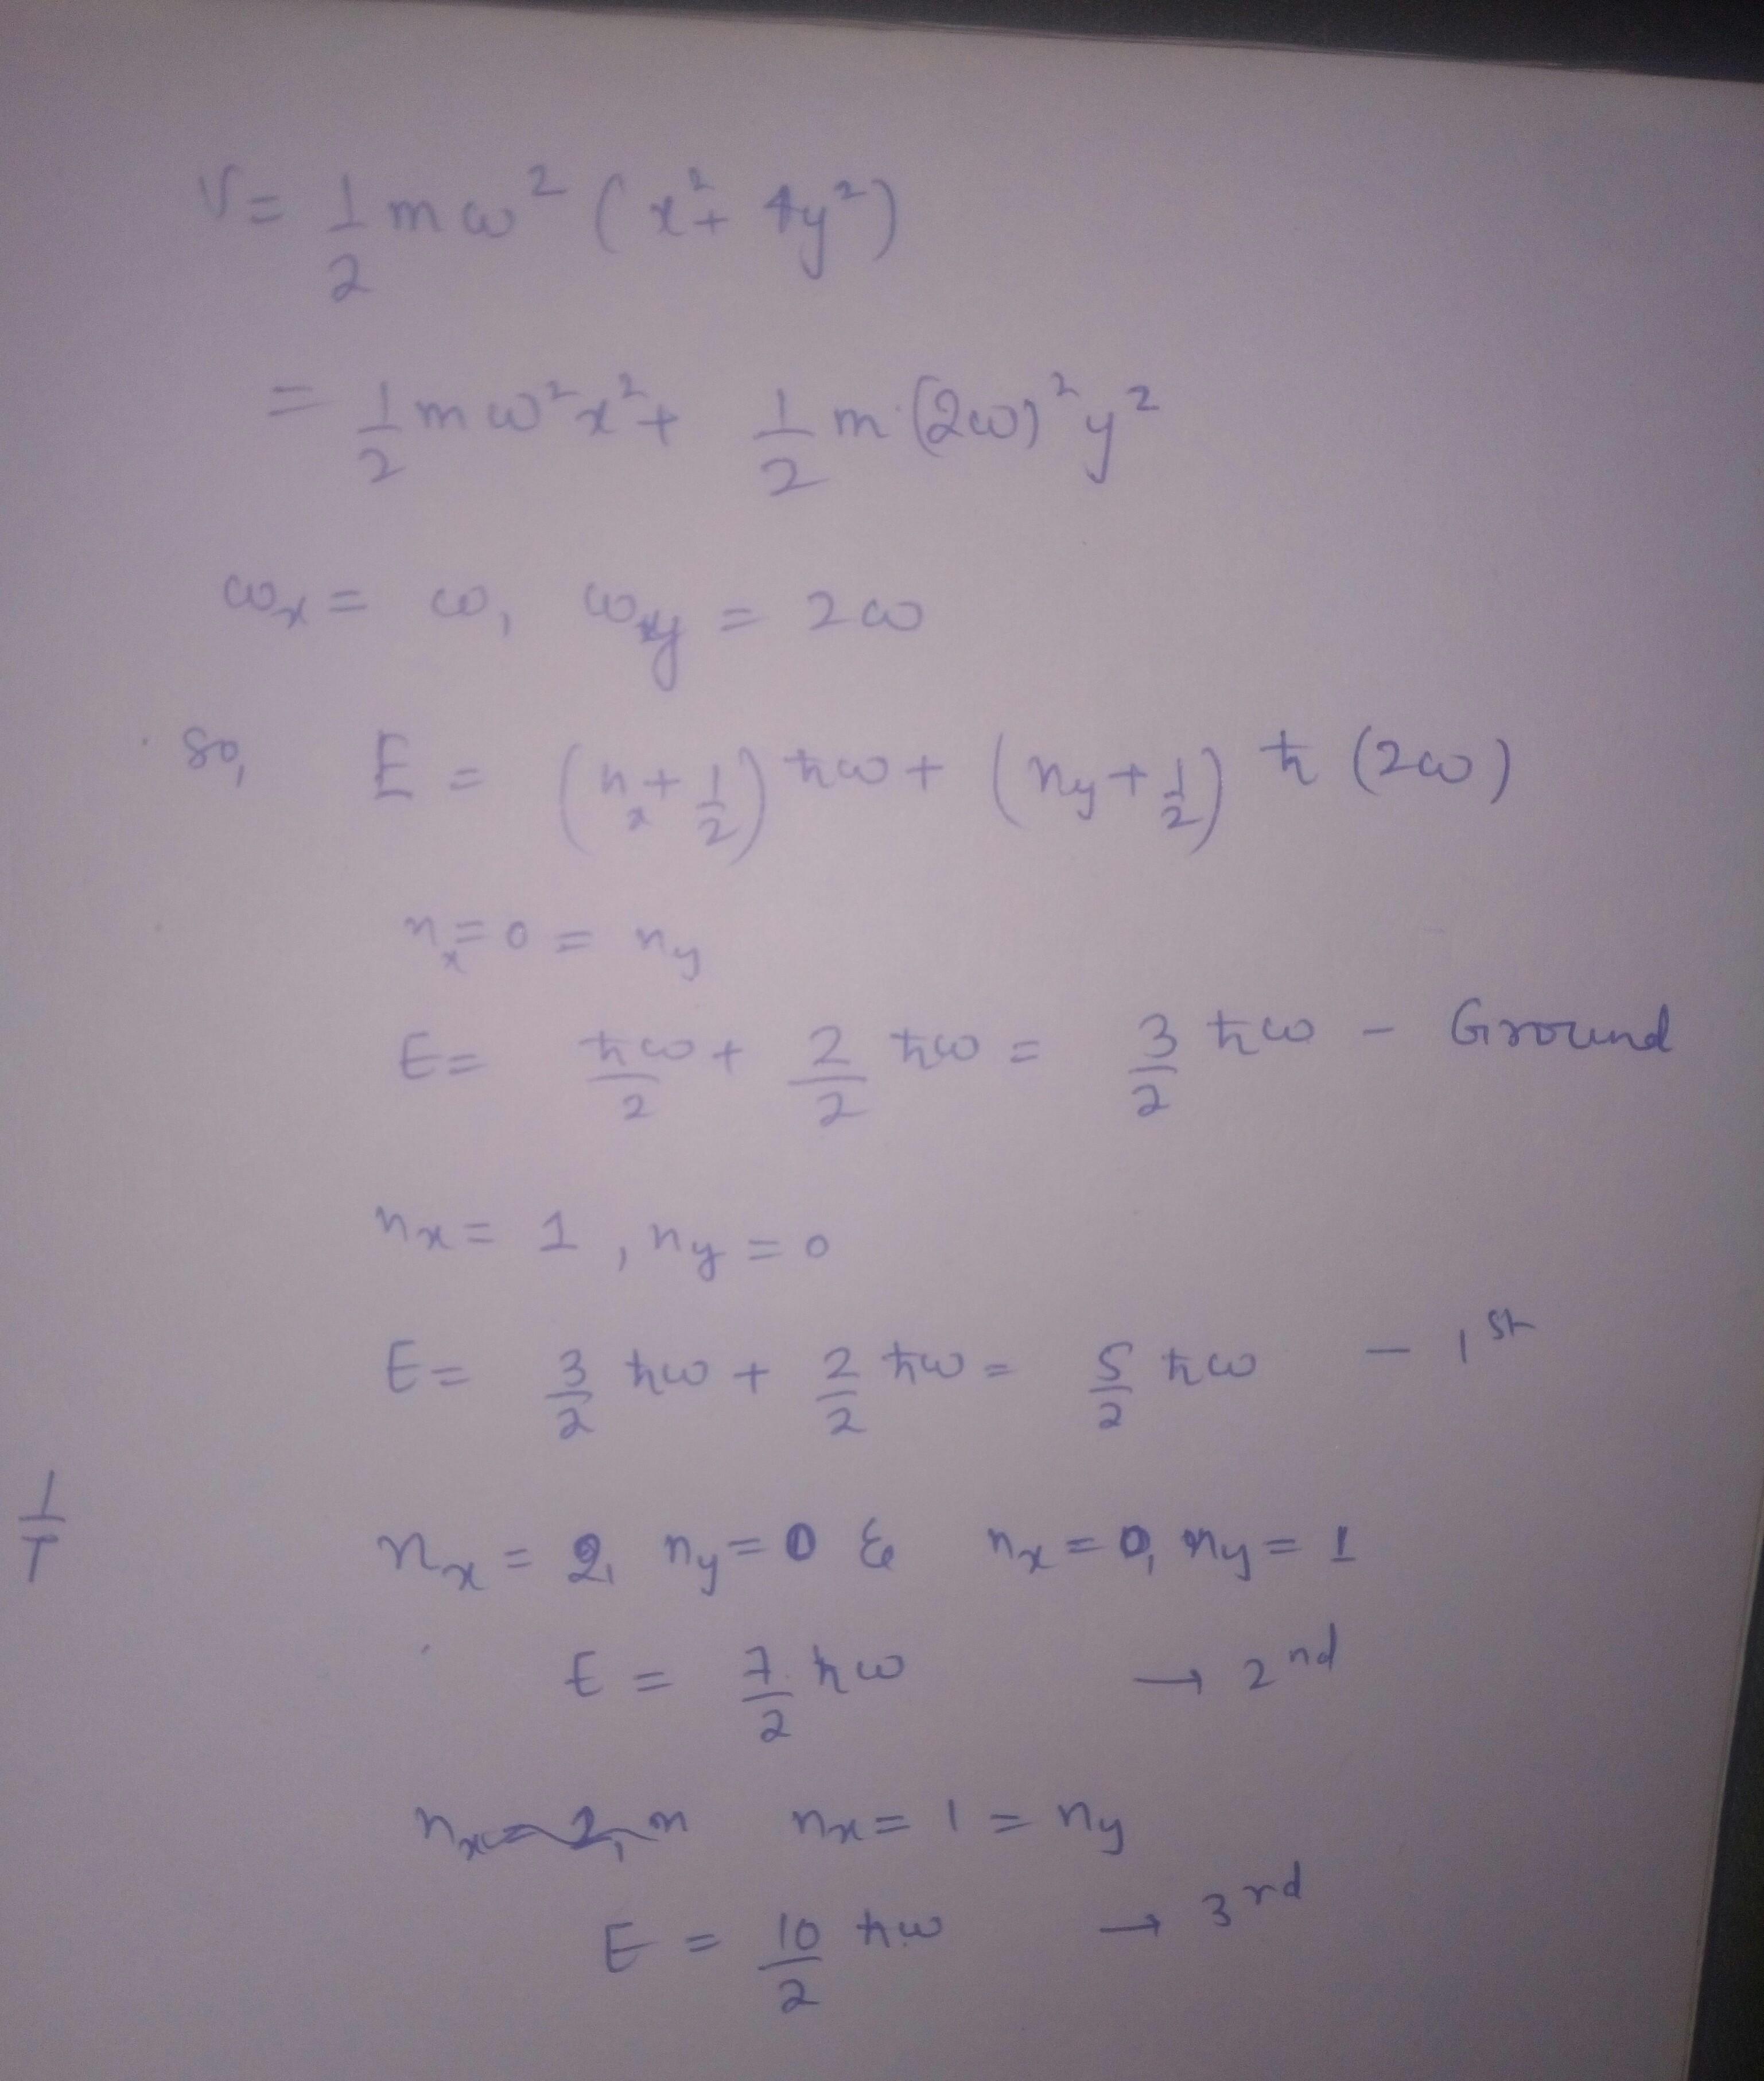 V = 1/2 mω² (x² + 4y²)
= 1/2 mω²x² + 1/2 m (2ω)² y²
ωx = ω, ωy = 2ω
So, E = (nx + 1/2) ħω + (ny + 1/2) ħ (2ω)
nx = 0 = ny
E = ħω/2 + 2/2 ħω = 3/2 ħω - Ground
nx = 1, ny = 0
E = 3/2 ħω + 2/2 ħω = 5/2 ħω - 1st
1/T
nx = 2, ny = 0 & nx = 0, ny = 1
E = 7/2 ħω → 2nd
nx = 2, n nx = 1 = ny
E = 10/2 ħω → 3rd